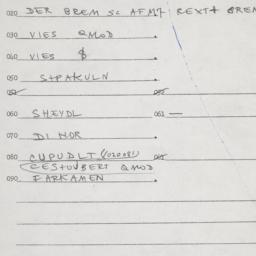 020 DER BREM SC AFM7 REXT4 BREM
030 VIES QMOD
040 VIES $
050 STPAKULN
060 SHEYDL 061 —
070 DI NOR
080 CUPUDLT (020081)
CESTUVBERT QMOD
090 FARKAMEN